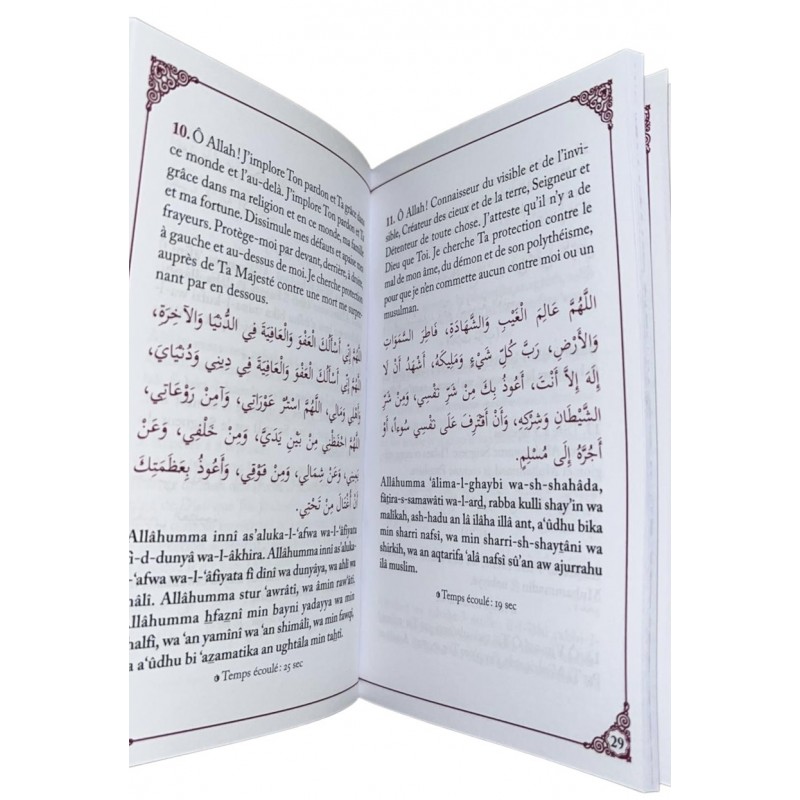 10. Ô Allah ! J'implore Ton pardon et Ta grâce dans
ce monde et l'au-delà. J'implore Ton pardon et Ta
grâce dans ma religion et en ce monde, ma famille
et ma fortune. Dissimule mes défauts et apaise mes
frayeurs. Protège-moi par devant, derrière, à droite,
à gauche et au-dessus de moi. Je cherche protection
auprès de Ta Majesté contre une mort me surpre-
nant par en dessous.
اللَّهُمَّ إِنِّي أَسْأَلُكَ الْعَفْوَ وَالْعَافِيَةَ فِي الدُّنْيَا وَالآخِرَةِ،
اللَّهُمَّ إِنِّي أَسْأَلُكَ الْعَفْوَ وَالْعَافِيَةَ فِي دِينِي وَدُنْيَايَ،
وَأَهْلِي وَمَالِي، اللَّهُمَّ اسْتُرْ عَوْرَاتِي، وَآمِنْ رَوْعَاتِي،
اللَّهُمَّ احْفَظْنِي مِنْ بَيْنِ يَدَيَّ، وَمِنْ خَلْفِي، وَعَنْ
يَمِينِي، وَعَنْ شِمَالِي، وَمِنْ فَوْقِي، وَأَعُوذُ بِعَظَمَتِكَ
أَنْ أُغْتَالَ مِنْ تَحْتِي.
Allâhumma innî as'aluka-l-'afwa wa-l-'âfiyata
fî-d-dunyâ wa-l-âkhira. Allâhumma innî as'aluka-
l-'afwa wa-l-'âfiyata fî dînî wa dunyâya, wa ahlî wa
mâlî. Allâhumma stur 'awrâtî, wa âmin raw'âtî.
Allâhumma hfaznî min bayni yadayya wa min
khalfî, wa 'an yamînî wa 'an shimâlî, wa min fawqî,
wa a'ûdhu bi 'azamatika an ughtâla min tahtî.
Temps écoulé : 25 sec
11. Ô Allah ! Connaisseur du visible et de l'invi-
sible, Créateur des cieux et de la terre, Seigneur et
Détenteur de toute chose. J'atteste qu'il n'y a de
Dieu que Toi. Je cherche Ta protection contre le
mal de mon âme, du démon et de son polythéisme,
pour que je n'en commette aucun contre moi ou un
musulman.
اللَّهُمَّ عَالِمَ الْغَيْبِ وَالشَّهَادَةِ، فَاطِرَ السَّمَوَاتِ
وَالأَرْضِ، رَبَّ كُلِّ شَيْءٍ وَمَلِيكَهُ، أَشْهَدُ أَنْ لَا
إِلَهَ إِلاَّ أَنْتَ، أَعُوذُ بِكَ مِنْ شَرِّ نَفْسِي، وَمِنْ شَرِّ
الشَّيْطَانِ وَشِرْكِهِ، وَأَنْ أَقْتَرِفَ عَلَى نَفْسِي سُوءاً، أَوْ
أَجُرَّهُ إِلَى مُسْلِمٍ.
Allâhumma 'âlima-l-ghaybi wa-sh-shahâda,
fâtira-s-samawâti wa-l-ard, rabba kulli shay'in wa
malîkah, ash-hadu an lâ ilâha illâ ant, a'ûdhu bika
min sharri nafsî, wa min sharri-sh-shaytâni wa
shirkih, wa an aqtarifa 'alâ nafsî sû'an aw ajurrahu
ilâ muslim.
Temps écoulé : 19 sec
29